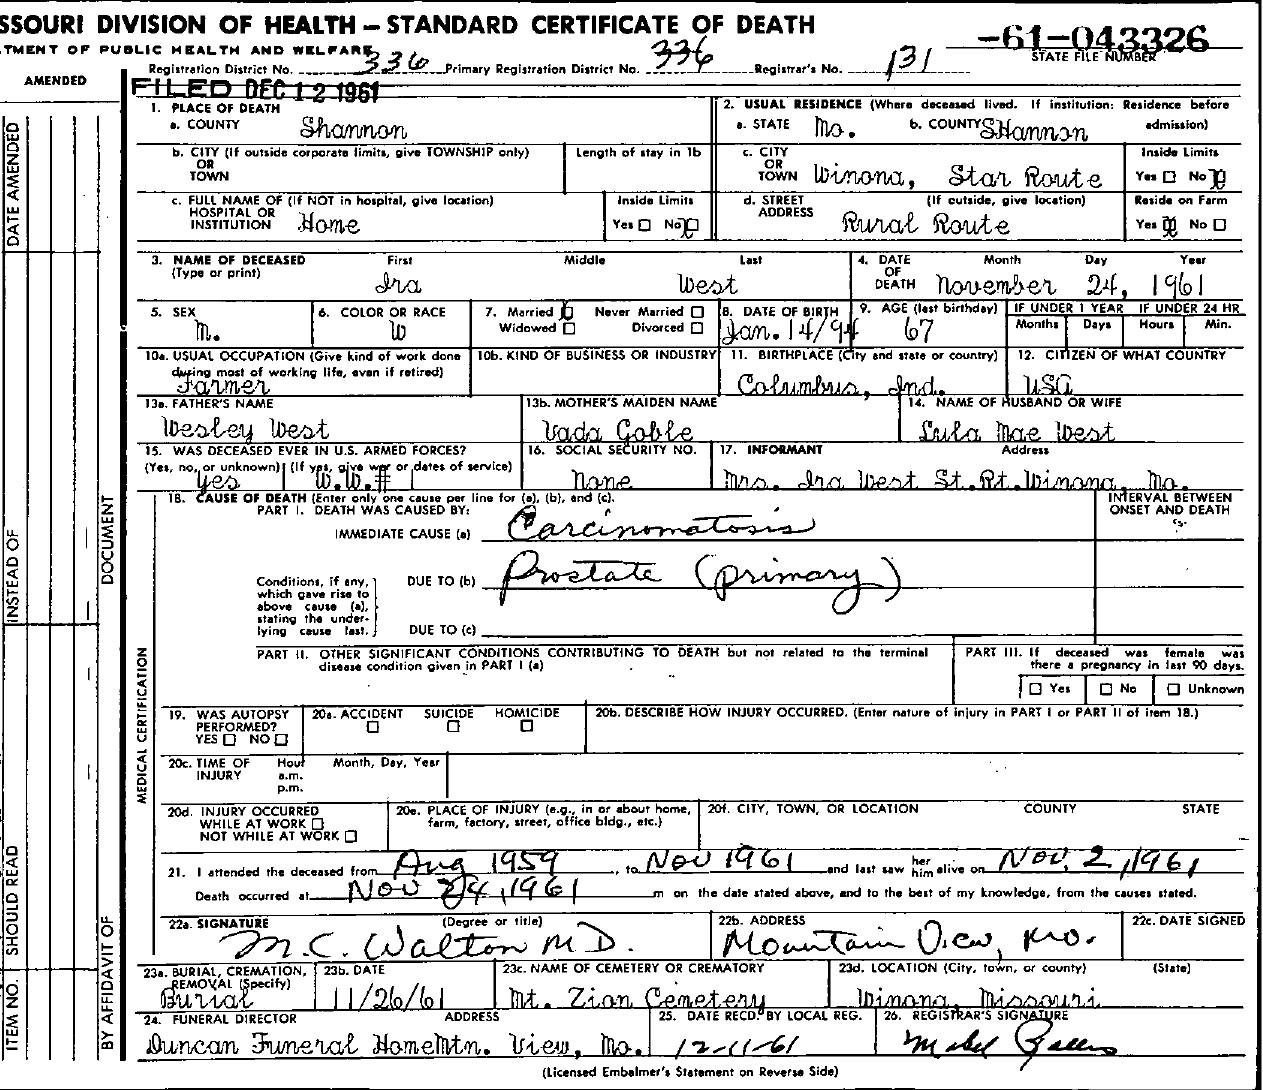 SSOURI DIVISION OF HEALTH — STANDARD CERTIFICATE OF DEATH
TMENT OF PUBLIC HEALTH AND WELFARE
-61-043326
STATE FILE NUMBER
Registration District No. 336 Primary Registration District No. 336 Registrar's No. 131
AMENDED
FILED DEC 12 1961
1. PLACE OF DEATH
a. COUNTY Shannon
2. USUAL RESIDENCE (Where deceased lived. If institution: Residence before admission)
a. STATE Mo. b. COUNTY SHannon
b. CITY (If outside corporate limits, give TOWNSHIP only) OR TOWN
Length of stay in 1b
c. CITY OR TOWN Winona, Star Route
Inside Limits
Yes ☐ No ☒
c. FULL NAME OF (If NOT in hospital, give location) HOSPITAL OR INSTITUTION Home
Inside Limits
Yes ☐ No ☒
d. STREET ADDRESS (If outside, give location)
Rural Route
Reside on Farm
Yes ☒ No ☐
3. NAME OF DECEASED (Type or print)
First Middle Last
Ira West
4. DATE OF DEATH Month Day Year
November 24, 1961
5. SEX
M.
6. COLOR OR RACE
W
7. Married ☒ Never Married ☐
Widowed ☐ Divorced ☐
8. DATE OF BIRTH
Jan. 14/94
9. AGE (last birthday)
67
IF UNDER 1 YEAR IF UNDER 24 HR
Months Days Hours Min.
10a. USUAL OCCUPATION (Give kind of work done during most of working life, even if retired)
Farmer
10b. KIND OF BUSINESS OR INDUSTRY
11. BIRTHPLACE (City and state or country)
Columbus, Ind.
12. CITIZEN OF WHAT COUNTRY
USA
13a. FATHER'S NAME
Wesley West
13b. MOTHER'S MAIDEN NAME
Vada Goble
14. NAME OF HUSBAND OR WIFE
Lula Mae West
15. WAS DECEASED EVER IN U.S. ARMED FORCES?
(Yes, no, or unknown) (If yes, give war or dates of service)
Yes W.W.
16. SOCIAL SECURITY NO.
None
17. INFORMANT Address
Mrs. Ira West St.Rt.Winona, Mo.
18. CAUSE OF DEATH (Enter only one cause per line for (a), (b), and (c).
PART I. DEATH WAS CAUSED BY:
INTERVAL BETWEEN ONSET AND DEATH
IMMEDIATE CAUSE (a) Carcinomatosis
Conditions, if any, which gave rise to above cause (a), stating the underlying cause last.
DUE TO (b) Prostate (primary)
DUE TO (c)
PART II. OTHER SIGNIFICANT CONDITIONS CONTRIBUTING TO DEATH but not related to the terminal disease condition given in PART I (a)
PART III. If deceased was female was there a pregnancy in last 90 days.
☐ Yes ☐ No ☐ Unknown
19. WAS AUTOPSY PERFORMED?
YES ☐ NO ☐
20a. ACCIDENT SUICIDE HOMICIDE
☐ ☐ ☐
20b. DESCRIBE HOW INJURY OCCURRED. (Enter nature of injury in PART I or PART II of item 18.)
20c. TIME OF INJURY Hour a.m. p.m. Month, Day, Year
20d. INJURY OCCURRED
WHILE AT WORK ☐
NOT WHILE AT WORK ☐
20e. PLACE OF INJURY (e.g., in or about home, farm, factory, street, office bldg., etc.)
20f. CITY, TOWN, OR LOCATION COUNTY STATE
21. I attended the deceased from Aug 1959, to Nov 1961 and last saw her him alive on Nov. 2, 1961
Death occurred at Nov 24, 1961 m on the date stated above, and to the best of my knowledge, from the causes stated.
22a. SIGNATURE (Degree or title)
M.C. Walton M D.
22b. ADDRESS
Mountain View, Mo.
22c. DATE SIGNED
23a. BURIAL, CREMATION, REMOVAL (Specify)
Burial
23b. DATE
11/26/61
23c. NAME OF CEMETERY OR CREMATORY
Mt. Zion Cemetery
23d. LOCATION (City, town, or county) (State)
Winona, Missouri
24. FUNERAL DIRECTOR ADDRESS
Duncan Funeral Home Mtn. View, Mo.
25. DATE RECD. BY LOCAL REG.
12-11-61
26. REGISTRAR'S SIGNATURE
Mabel
(Licensed Embalmer's Statement on Reverse Side)
DATE AMENDED
INSTEAD OF
DOCUMENT
MEDICAL CERTIFICATION
ITEM NO. SHOULD READ
BY AFFIDAVIT OF